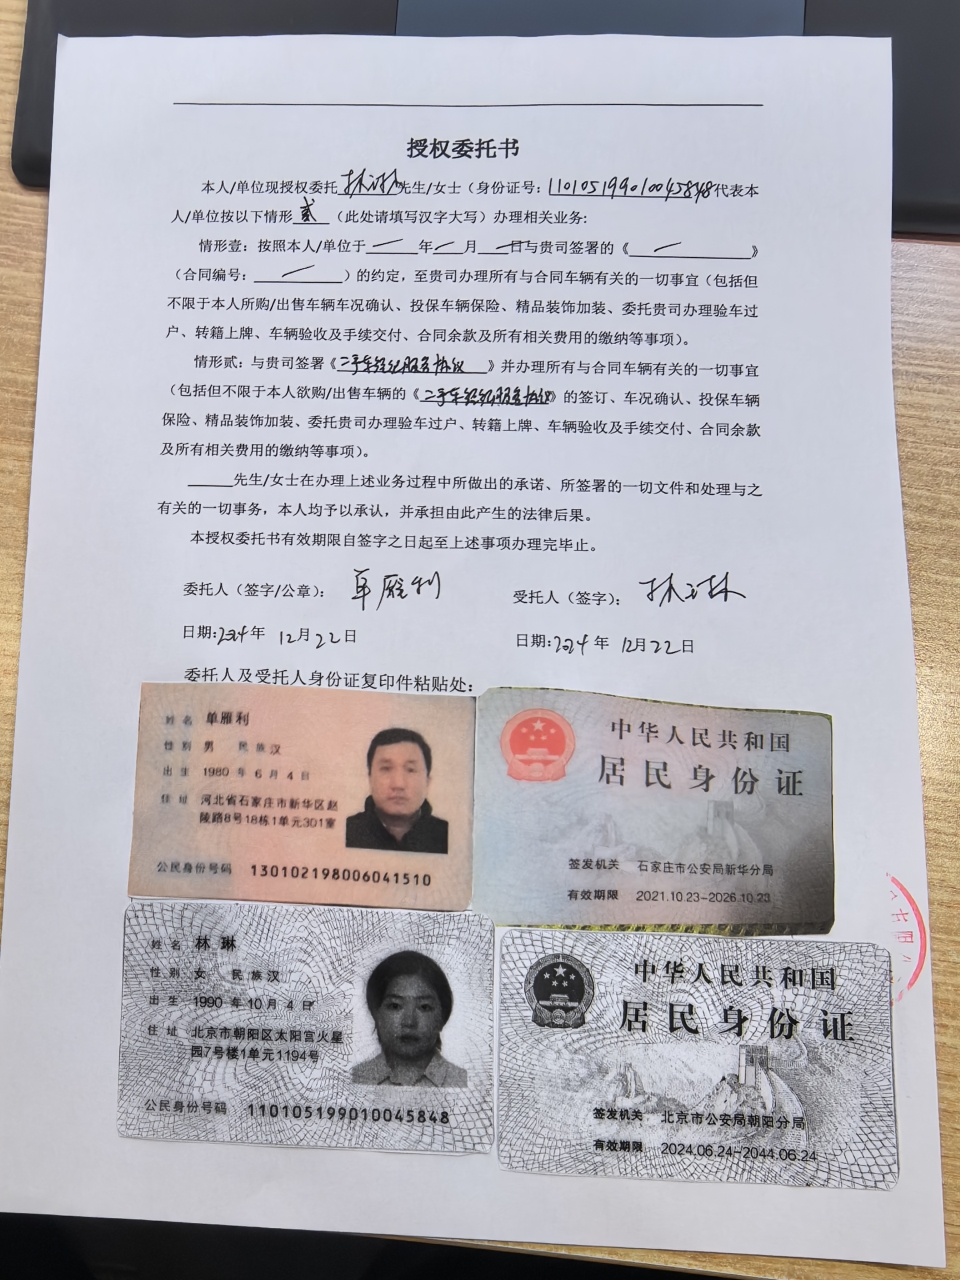 授权委托书
本人/单位现授权委托林琳先生/女士（身份证号：110105199010045848代表本
人/单位按以下情形贰（此处请填写汉字大写）办理相关业务:
情形壹：按照本人/单位于 年 月 日与贵司签署的《 》
（合同编号： ）的约定，至贵司办理所有与合同车辆有关的一切事宜（包括但
不限于本人所购/出售车辆车况确认、投保车辆保险、精品装饰加装、委托贵司办理验车过
户、转籍上牌、车辆验收及手续交付、合同余款及所有相关费用的缴纳等事项）。
情形贰：与贵司签署《二手车经纪服务协议》并办理所有与合同车辆有关的一切事宜
（包括但不限于本人欲购/出售车辆的《二手车经纪服务协议》的签订、车况确认、投保车辆
保险、精品装饰加装、委托贵司办理验车过户、转籍上牌、车辆验收及手续交付、合同余款
及所有相关费用的缴纳等事项）。
先生/女士在办理上述业务过程中所做出的承诺、所签署的一切文件和处理与之
有关的一切事务，本人均予以承认，并承担由此产生的法律后果。
本授权委托书有效期限自签字之日起至上述事项办理完毕止。
委托人（签字/公章）： 单雁利 受托人（签字）： 林琳
日期:2024年 12月22日 日期:2024年 12月22日
委托人及受托人身份证复印件粘贴处：
姓名 单雁利
性别 男 民族 汉
出生 1980 年 6 月 4 日
住址 河北省石家庄市新华区赵
陵路8号18栋1单元301室
公民身份号码 130102198006041510
中华人民共和国
居民身份证
签发机关 石家庄市公安局新华分局
有效期限 2021.10.23-2026.10.23
姓名 林琳
性别 女 民族 汉
出生 1990 年 10 月 4 日
住址 北京市朝阳区太阳宫火星
园7号楼1单元1194号
公民身份号码 110105199010045848
中华人民共和国
居民身份证
签发机关 北京市公安局朝阳分局
有效期限 2024.06.24-2044.06.24